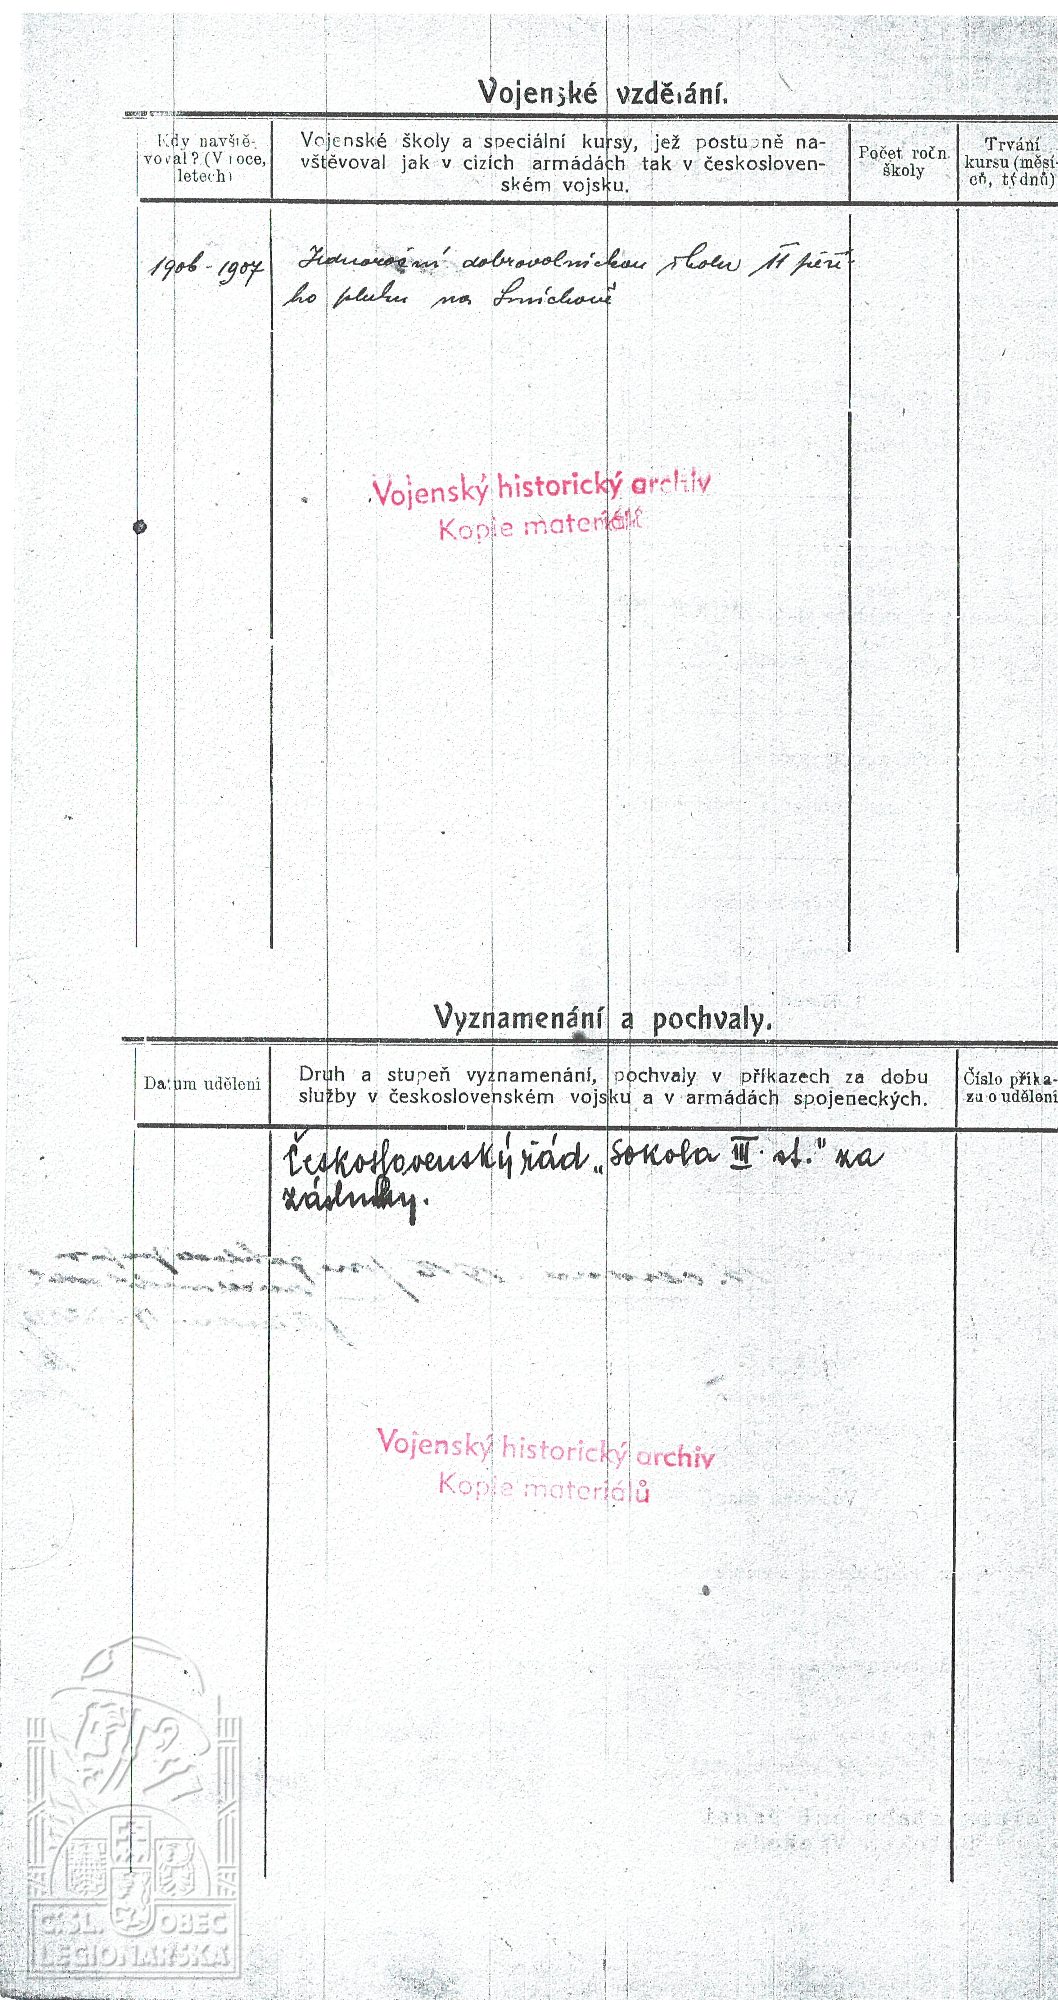 Vojenské vzdělání.
Kdy navště-
voval? (V roce,
letech)
Vojenské školy a speciální kursy, jež postupně na-
vštěvoval jak v cizích armádách tak v českosloven-
ském vojsku.
Počet ročn.
školy
Trvání
kursu (měsí-
ců, týdnů)
1906-1907
Jednoroční dobrovolnickou školu 11 pěší-
ho pluku na Smíchově
Vojenský historický archiv
Kopie materiálů
Vyznamenání a pochvaly.
Datum udělení
Druh a stupeň vyznamenání, pochvaly v příkazech za dobu
služby v československém vojsku a v armádách spojeneckých.
Číslo příka-
zu o udělení
Československý řád „Sokola III. st." za
zásluhy.
Vojenský historický archiv
Kopie materiálů
ČSL. OBEC
LEGIONÁŘSKÁ